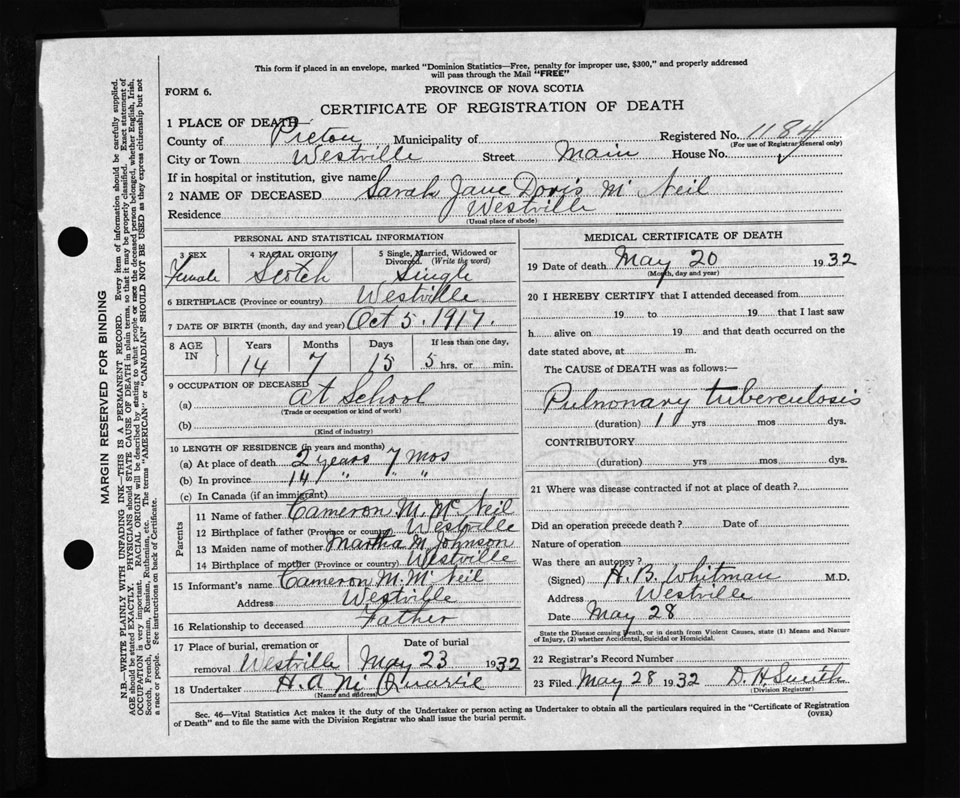 This form if placed in an envelope, marked "Dominion Statistics—Free, penalty for improper use, $300," and properly addressed
will pass through the Mail "FREE"
FORM 6.
PROVINCE OF NOVA SCOTIA
CERTIFICATE OF REGISTRATION OF DEATH
1 PLACE OF DEATH
County of Pictou Municipality of Registered No. 1184
(For use of Registrar General only)
City or Town Westville Street Main House No.
If in hospital or institution, give name
2 NAME OF DECEASED Sarah Jane Doris Mc Neil
Residence Westville
(Usual place of abode)
PERSONAL AND STATISTICAL INFORMATION
3 SEX 4 RACIAL ORIGIN 5 Single, Married, Widowed or Divorced. (Write the word)
Female Scotch Single
6 BIRTHPLACE (Province or country) Westville
7 DATE OF BIRTH (month, day and year) Oct 5. 1917.
8 AGE IN Years Months Days If less than one day,
14 7 15 5 hrs. or min.
9 OCCUPATION OF DECEASED
(a) At School
(Trade or occupation or kind of work)
(b)
(Kind of industry)
10 LENGTH OF RESIDENCE (in years and months)
(a) At place of death 2 years 7 mos
(b) In province 14 " " "
(c) In Canada (if an immigrant)
Parents
11 Name of father Cameron M. Mc Neil
12 Birthplace of father (Province or country) Westville
13 Maiden name of mother Martha M. Johnson
14 Birthplace of mother (Province or country) Westville
15 Informant's name Cameron M. Mc Neil
Address Westville
16 Relationship to deceased Father
17 Place of burial, cremation or removal Date of burial
Westville May 23 1932
18 Undertaker H. A
(Name and address)
MEDICAL CERTIFICATE OF DEATH
19 Date of death May 20 1932
(Month, day and year)
20 I HEREBY CERTIFY that I attended deceased from
19 to 19 that I last saw
h alive on 19 and that death occurred on the
date stated above, at m.
The CAUSE of DEATH was as follows:—
Pulmonary tuberculosis
(duration) 1 yrs mos dys.
CONTRIBUTORY
(duration) yrs mos dys.
21 Where was disease contracted if not at place of death?
Did an operation precede death? Date of
Nature of operation
Was there an autopsy?
(Signed) H. B. Whitman M.D.
Address Westville
Date May 28
State the Disease causing Death, or in death from Violent Causes, state (1) Means and Nature
of Injury, (2) whether Accidental, Suicidal or Homicidal.
22 Registrar's Record Number
23 Filed May 28 1932 D. H. Smith
(Division Registrar)
Sec. 46—Vital Statistics Act makes it the duty of the Undertaker or person acting as Undertaker to obtain all the particulars required in the "Certificate of Registration
of Death" and to file the same with the Division Registrar who shall issue the burial permit. (OVER)
MARGIN RESERVED FOR BINDING
N.B.—WRITE PLAINLY WITH UNFADING INK—THIS IS A PERMANENT RECORD. Every item of information should be carefully supplied.
AGE should be stated EXACTLY. PHYSICIANS should STATE CAUSE OF DEATH in plain terms, so that it may be properly classified. Exact statement of
OCCUPATION is very important. RACIAL ORIGIN will be described by stating to what people or race the deceased person belonged, whether English, Irish,
Scotch, French, German, Russian, Ruthenian, etc. The terms "AMERICAN" or "CANADIAN" SHOULD NOT BE USED as they express citizenship but not
a race or people. See instructions on back of Certificate.